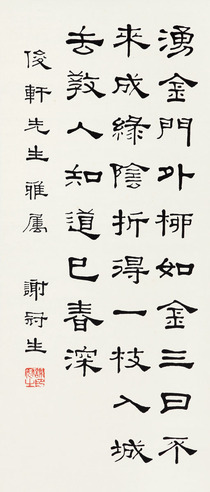 湧金門外栁如金三日不
來成綠陰折得一枝入城
去教人知道已春深
俊軒先生雅屬
謝冠生